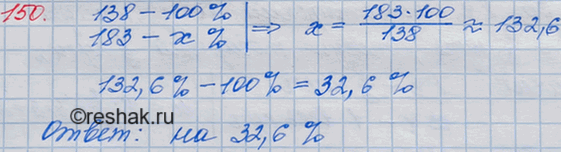 150. 138 – 100 % | ⇒ x = 183·100/138 ≈ 132,6
183 – x %
132,6 % – 100 % = 32,6 %
©reshak.ru
Ответ: на 32,6 %